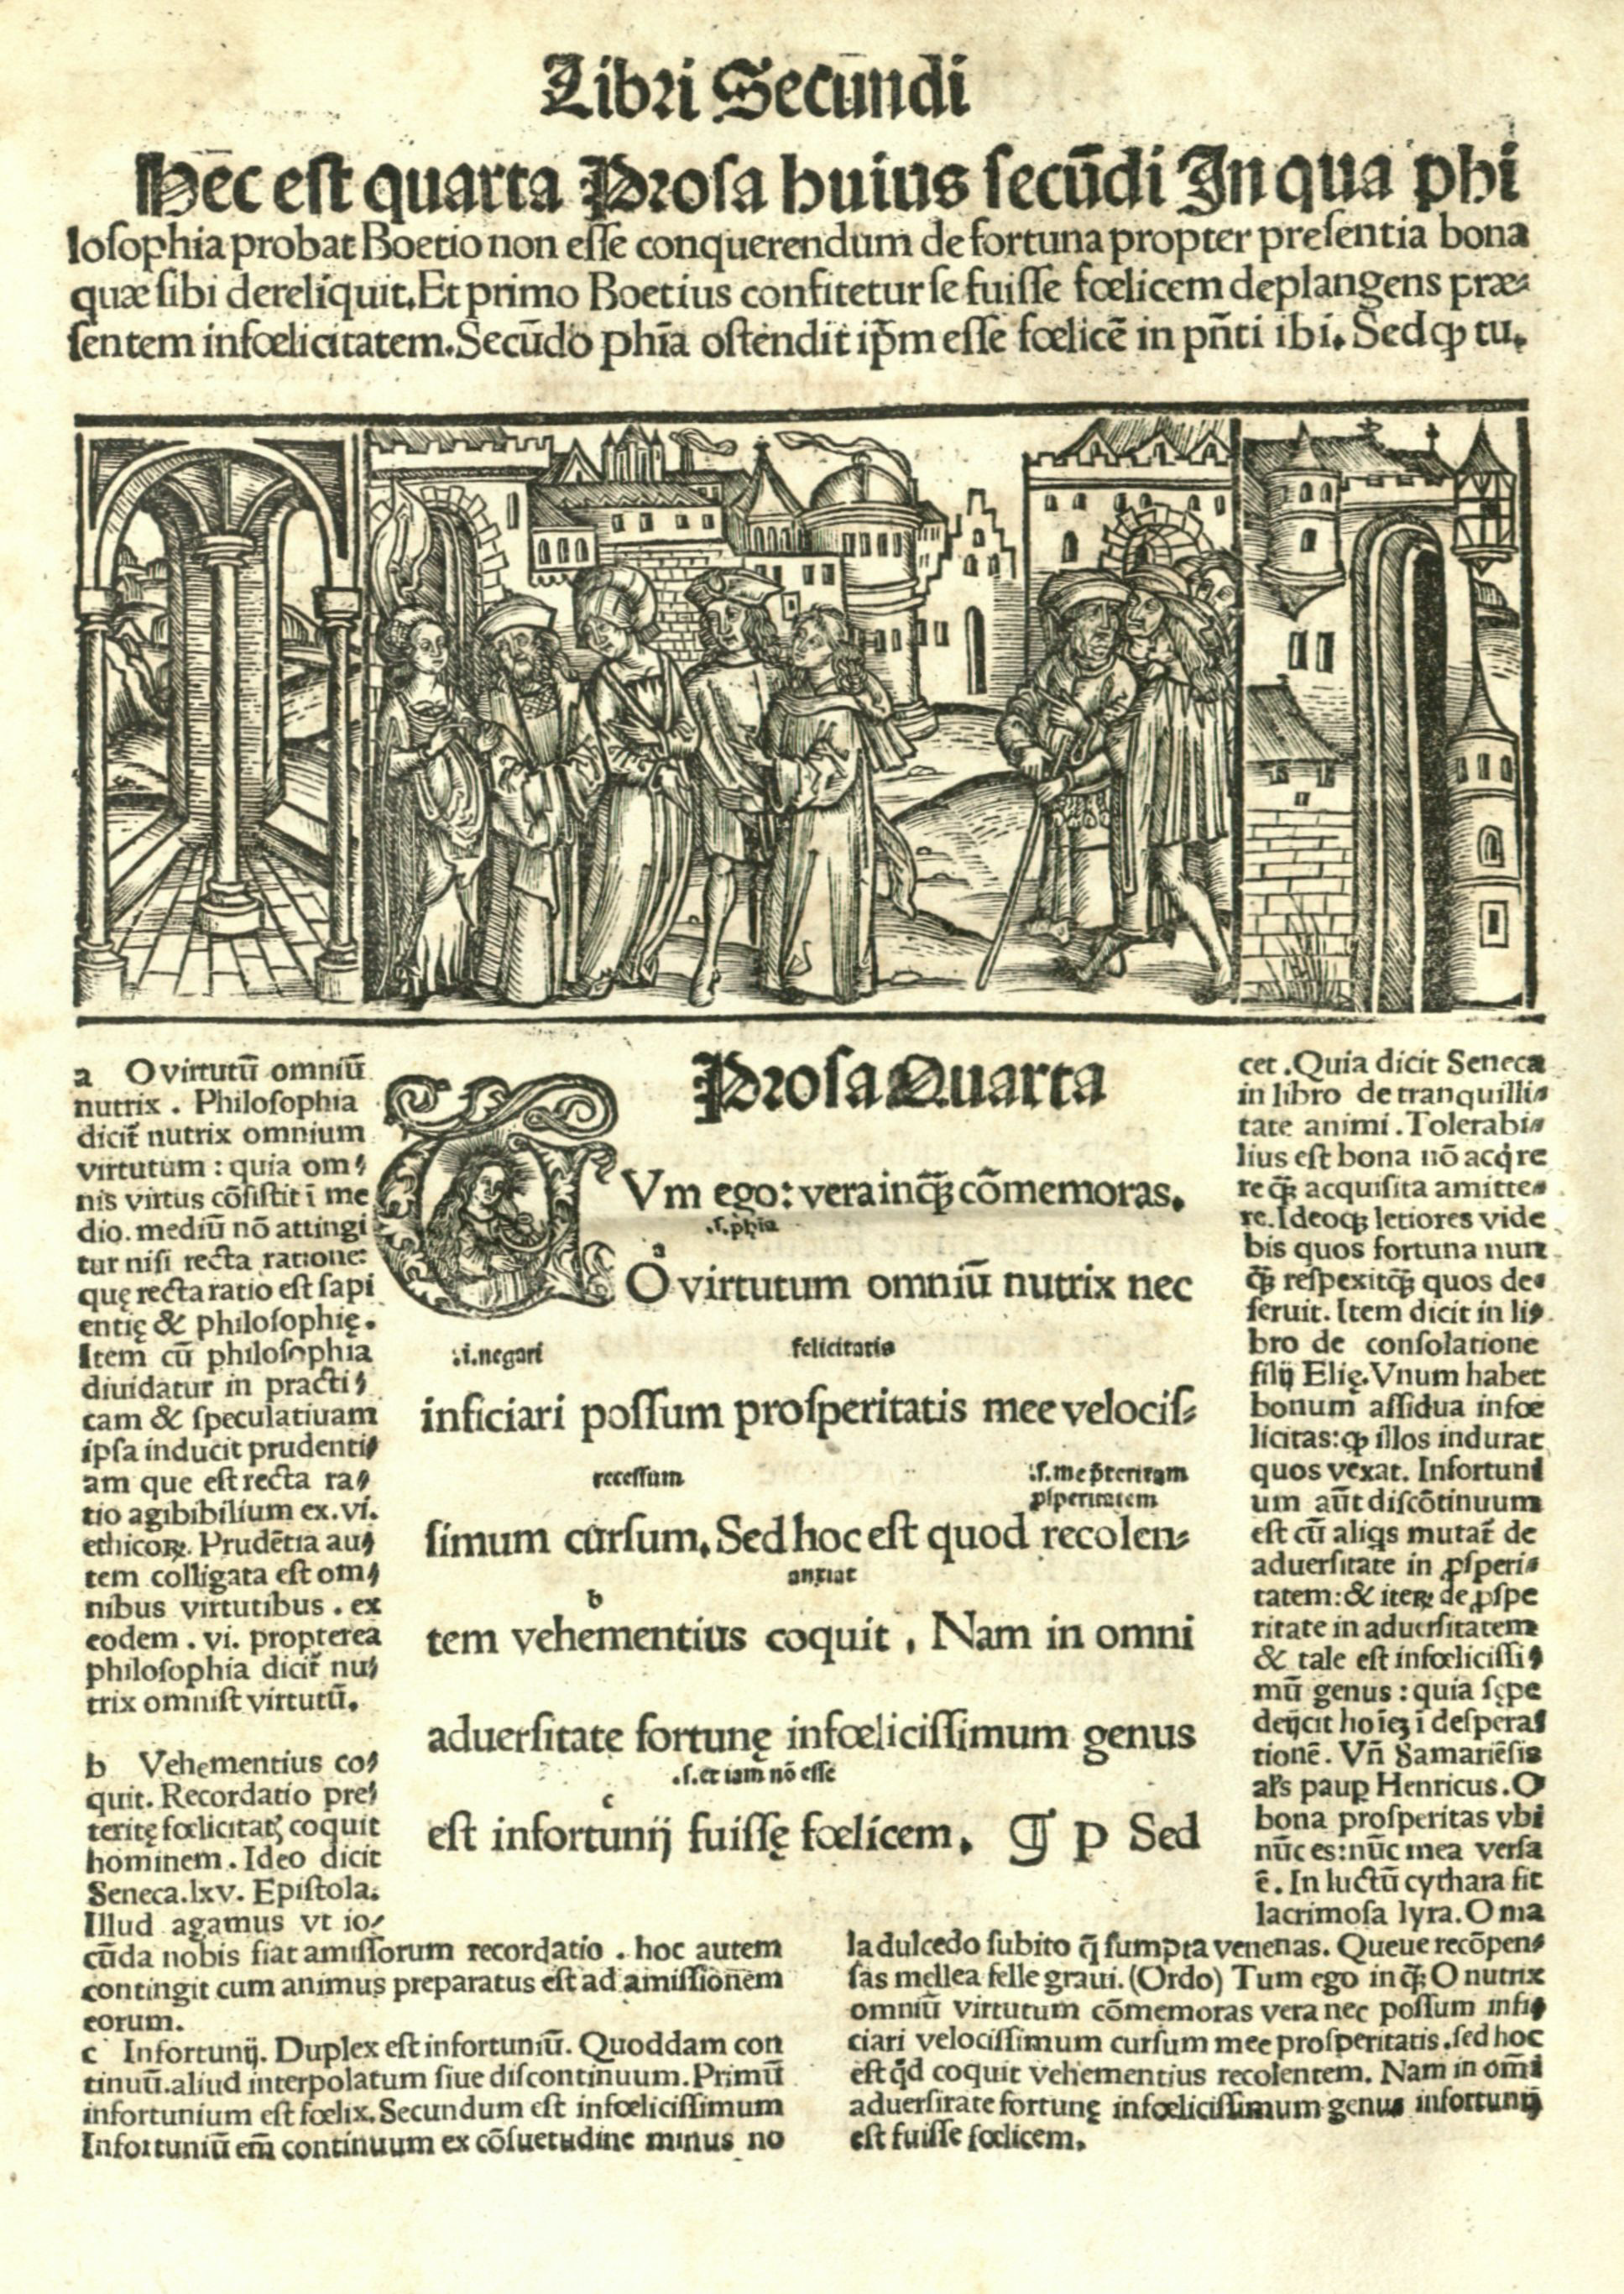 Libri Secūndi
Hēc est quarta Prosa huius secūdi In qua phi
losophia probat Boetio non esse conquerendum de fortuna propter presentia bona
quæ sibi dereliquit. Et primo Boetius confitetur se fuisse fœlicem deplangens præ-
sentem infœlicitatem. Secūdo phīa ostendit ip̄m esse fœlicē in pn̄ti ibi. Sed ꝙ tu.
a O virtutū omniū
nutrix . Philosophia
dicit̄ nutrix omnium
virtutum : quia om-
nis virtus cōsistit ī me
dio. mediū nō attingi
tur nisi recta ratione:
quę recta ratio est sapi
entię & philosophię.
Item cū philosophia
diuidatur in practi-
cam & speculatiuam
ipsa inducit prudenti-
am que est recta ra-
tio agibibilium ex .vi.
ethicoꝝ. Prudētia au-
tem colligata est om-
nibus virtutibus . ex
eodem . vi. propterea
philosophia dicit̄ nu-
trix omnist virtutū.
b Vehementius co-
quit. Recordatio pre-
teritę fœlicitatꝭ coquit
hominem . Ideo dicit
Seneca .lxv. Epistola.
Illud agamus vt io-
cūda nobis fiat amissorum recordatio . hoc autem
contingit cum animus preparatus est ad amissionem
eorum.
c Infortunij. Duplex est infortuniū. Quoddam con
tinuū. aliud interpolatum siue discontinuum. Primū
infortunium est fœlix. Secundum est infœlicissimum
Infortuniū em̄ continuum ex cōsuetudine minus no
Prosa Quarta
CVm ego: vera inquā cōmemoras.
.s. phīa
a
O virtutum omniū nutrix nec
.i. negari felicitatis
inficiari possum prosperitatis mee velocis-
recessum .s. me p̄teritam
ꝓsperitatem
simum cursum. Sed hoc est quod recolen-
anxiat
b
tem vehementius coquit . Nam in omni
aduersitate fortunę infœlicissimum genus
.s. et iam nō esse
c
est infortunij fuissę fœlicem. ¶ p Sed
cet . Quia dicit Seneca
in libro de tranquilli-
tate animi . Tolerabi-
lius est bona nō acq̇re
re q̄ꝫ acquisita amitte-
re. Ideoqꝫ letiores vide
bis quos fortuna nun
q̄ꝫ respexit q̄ꝫ quos de-
seruit. Item dicit in li-
bro de consolatione
filij Elię. Vnum habet
bonum assidua infœ
licitas: ꝙ illos indurat
quos vexat. Infortuni
um aūt discōtinuum
est cū aliq̇s mutat̄ de
aduersitate in ꝓsperi-
tatem: & iteꝝ de ꝓspe
ritate in aduersitatem
& tale est infœlicissi-
mū genus : quia sępe
deijcit hoīeꝫ ī despera-
tionē . Vn̄ Samariēsis
al's pauꝑ Henricus . O
bona prosperitas vbi
nūc es: nūc mea versa
ē . In luctū cythara fit
lacrimosa lyra. O ma
la dulcedo subito q̄ sumpta venenas. Queue recōpen-
sas mellea felle graui. (Ordo) Tum ego inq̄ꝫ O nutrix
omniū virtutum cōmemoras vera nec possum infi-
ciari velocissimum cursum mee prosperitatis . sed hoc
est q̇d coquit vehementius recolentem. Nam in om̄i
aduersitate fortunę infœlicissimum genus infortunij
est fuisse fœlicem.